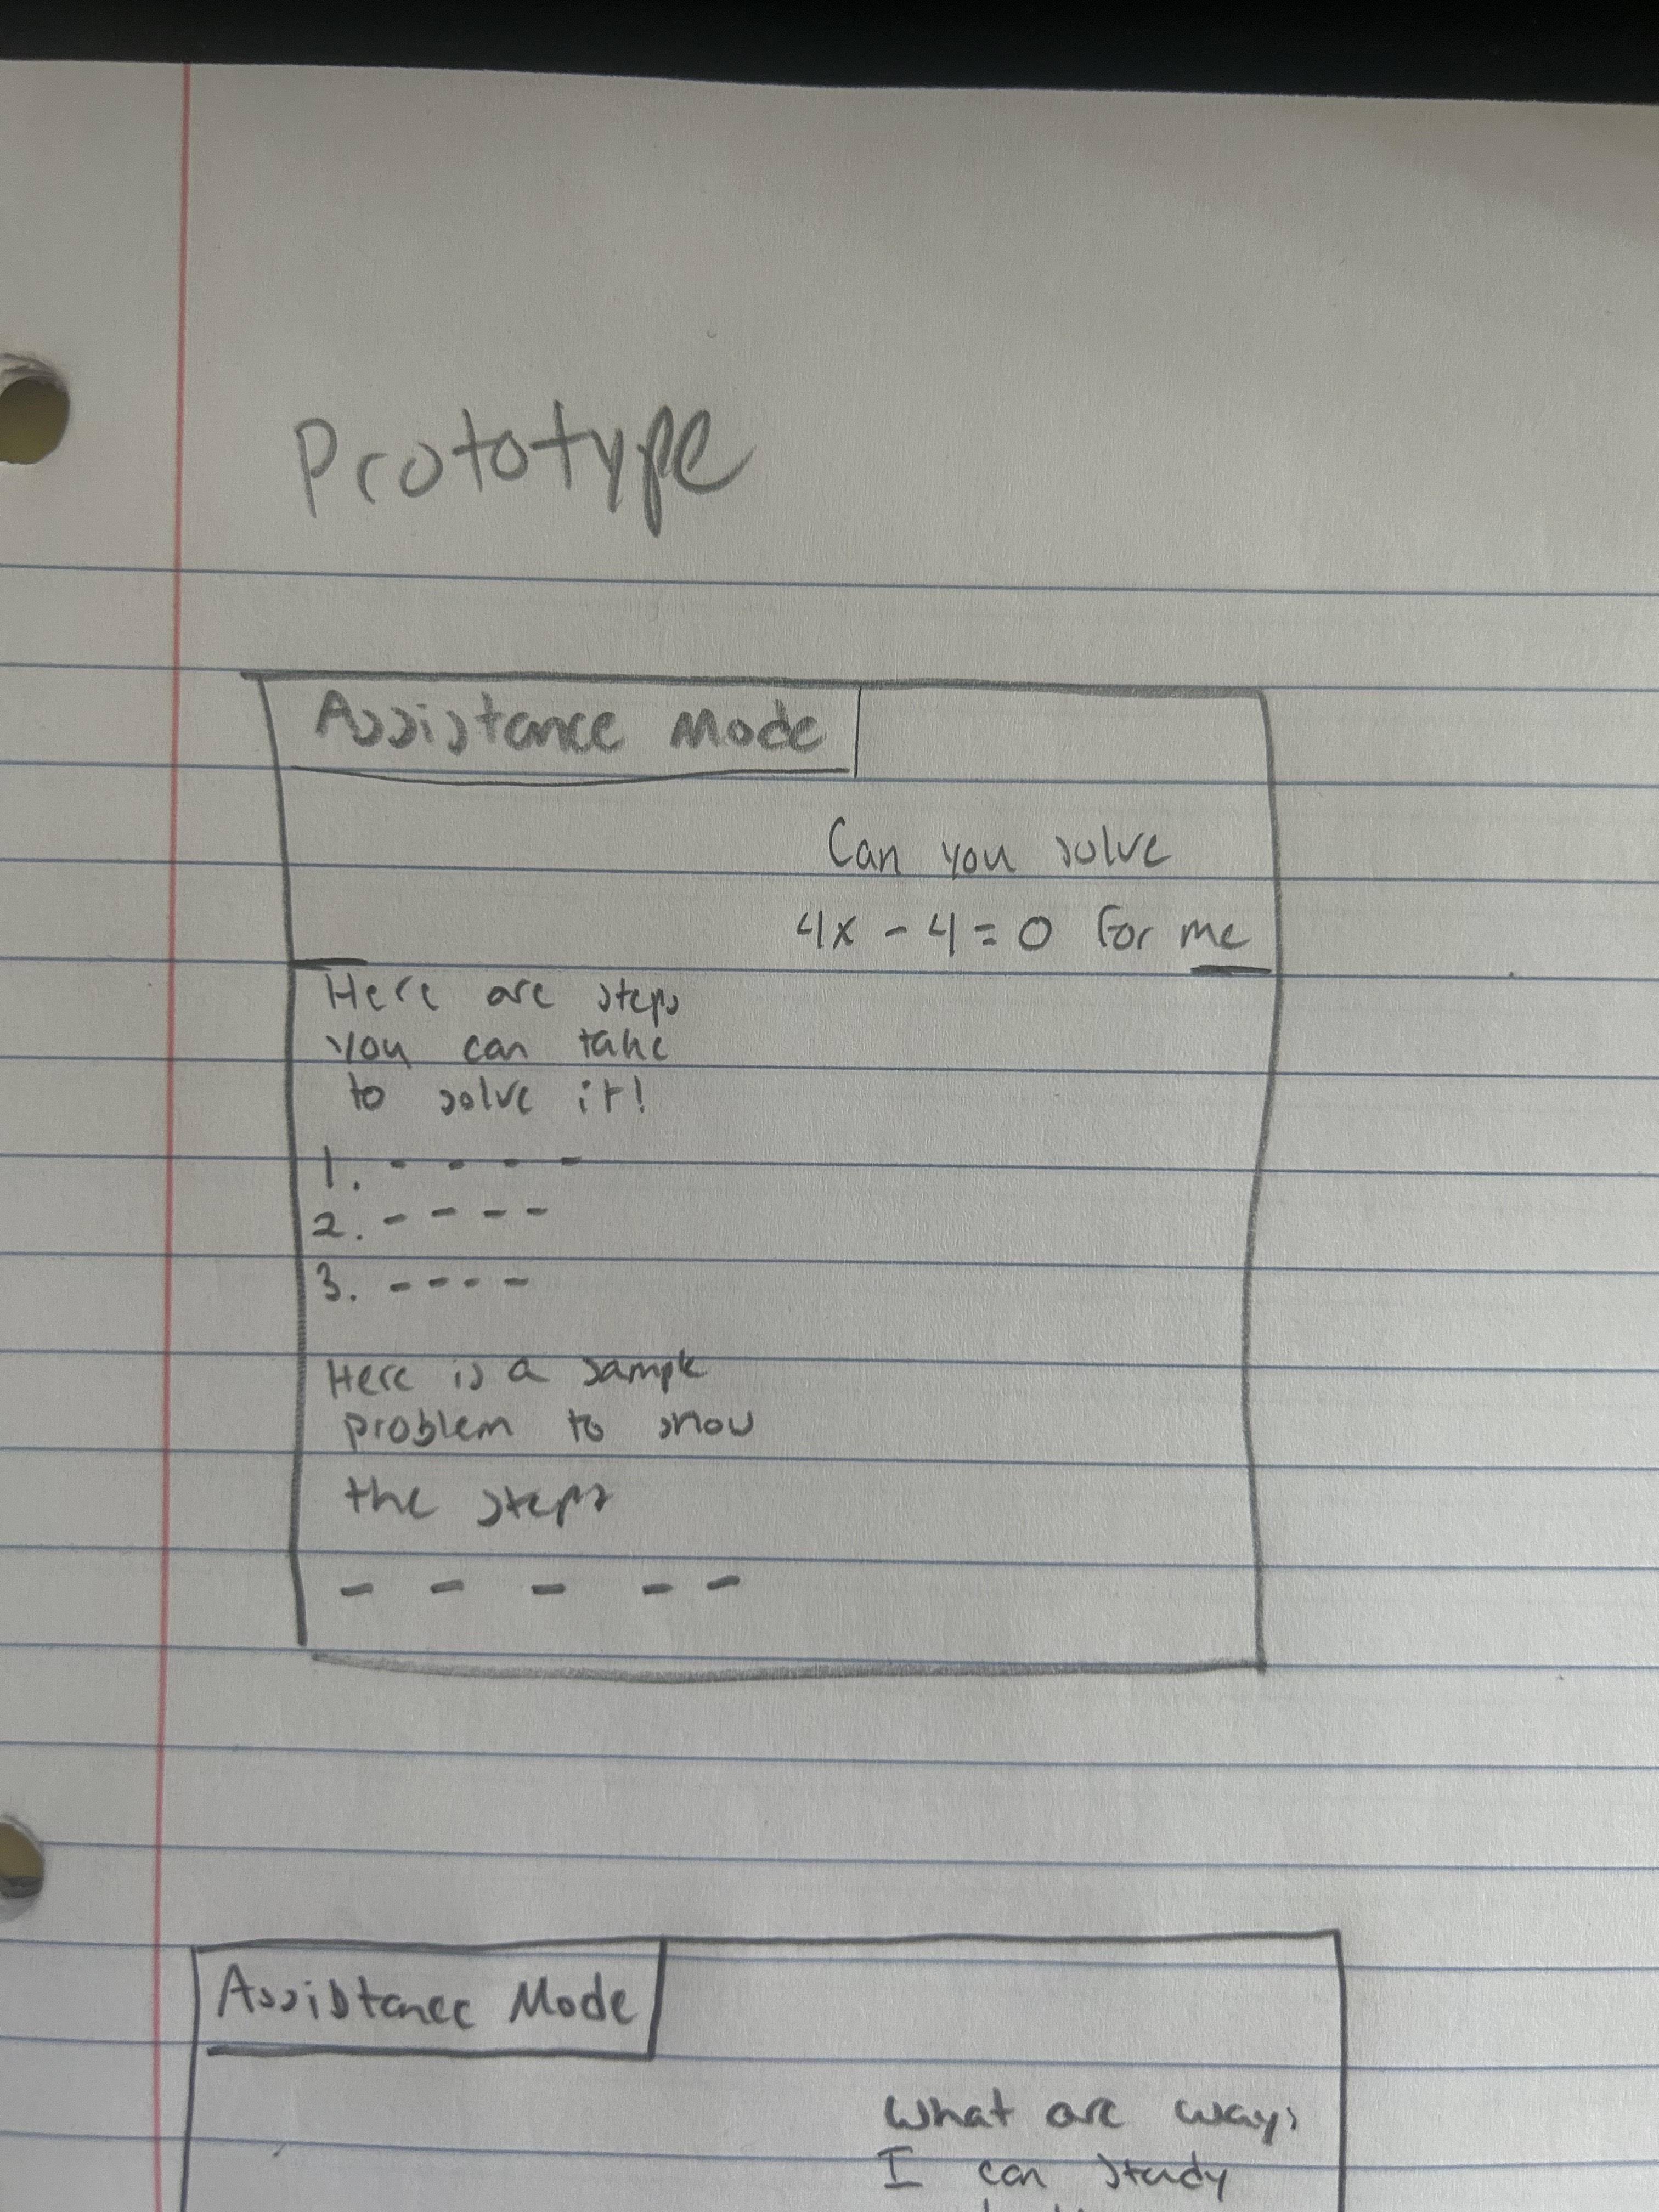 Prototype
Assistance Mode
Can you solve
4x - 4 = 0 for me
Here are steps
you can take
to solve it!
1. - - - -
2. - - - -
3. - - - -
Here is a sample
problem to show
the steps
- - - - -
Assistance Mode
What are ways
I can study